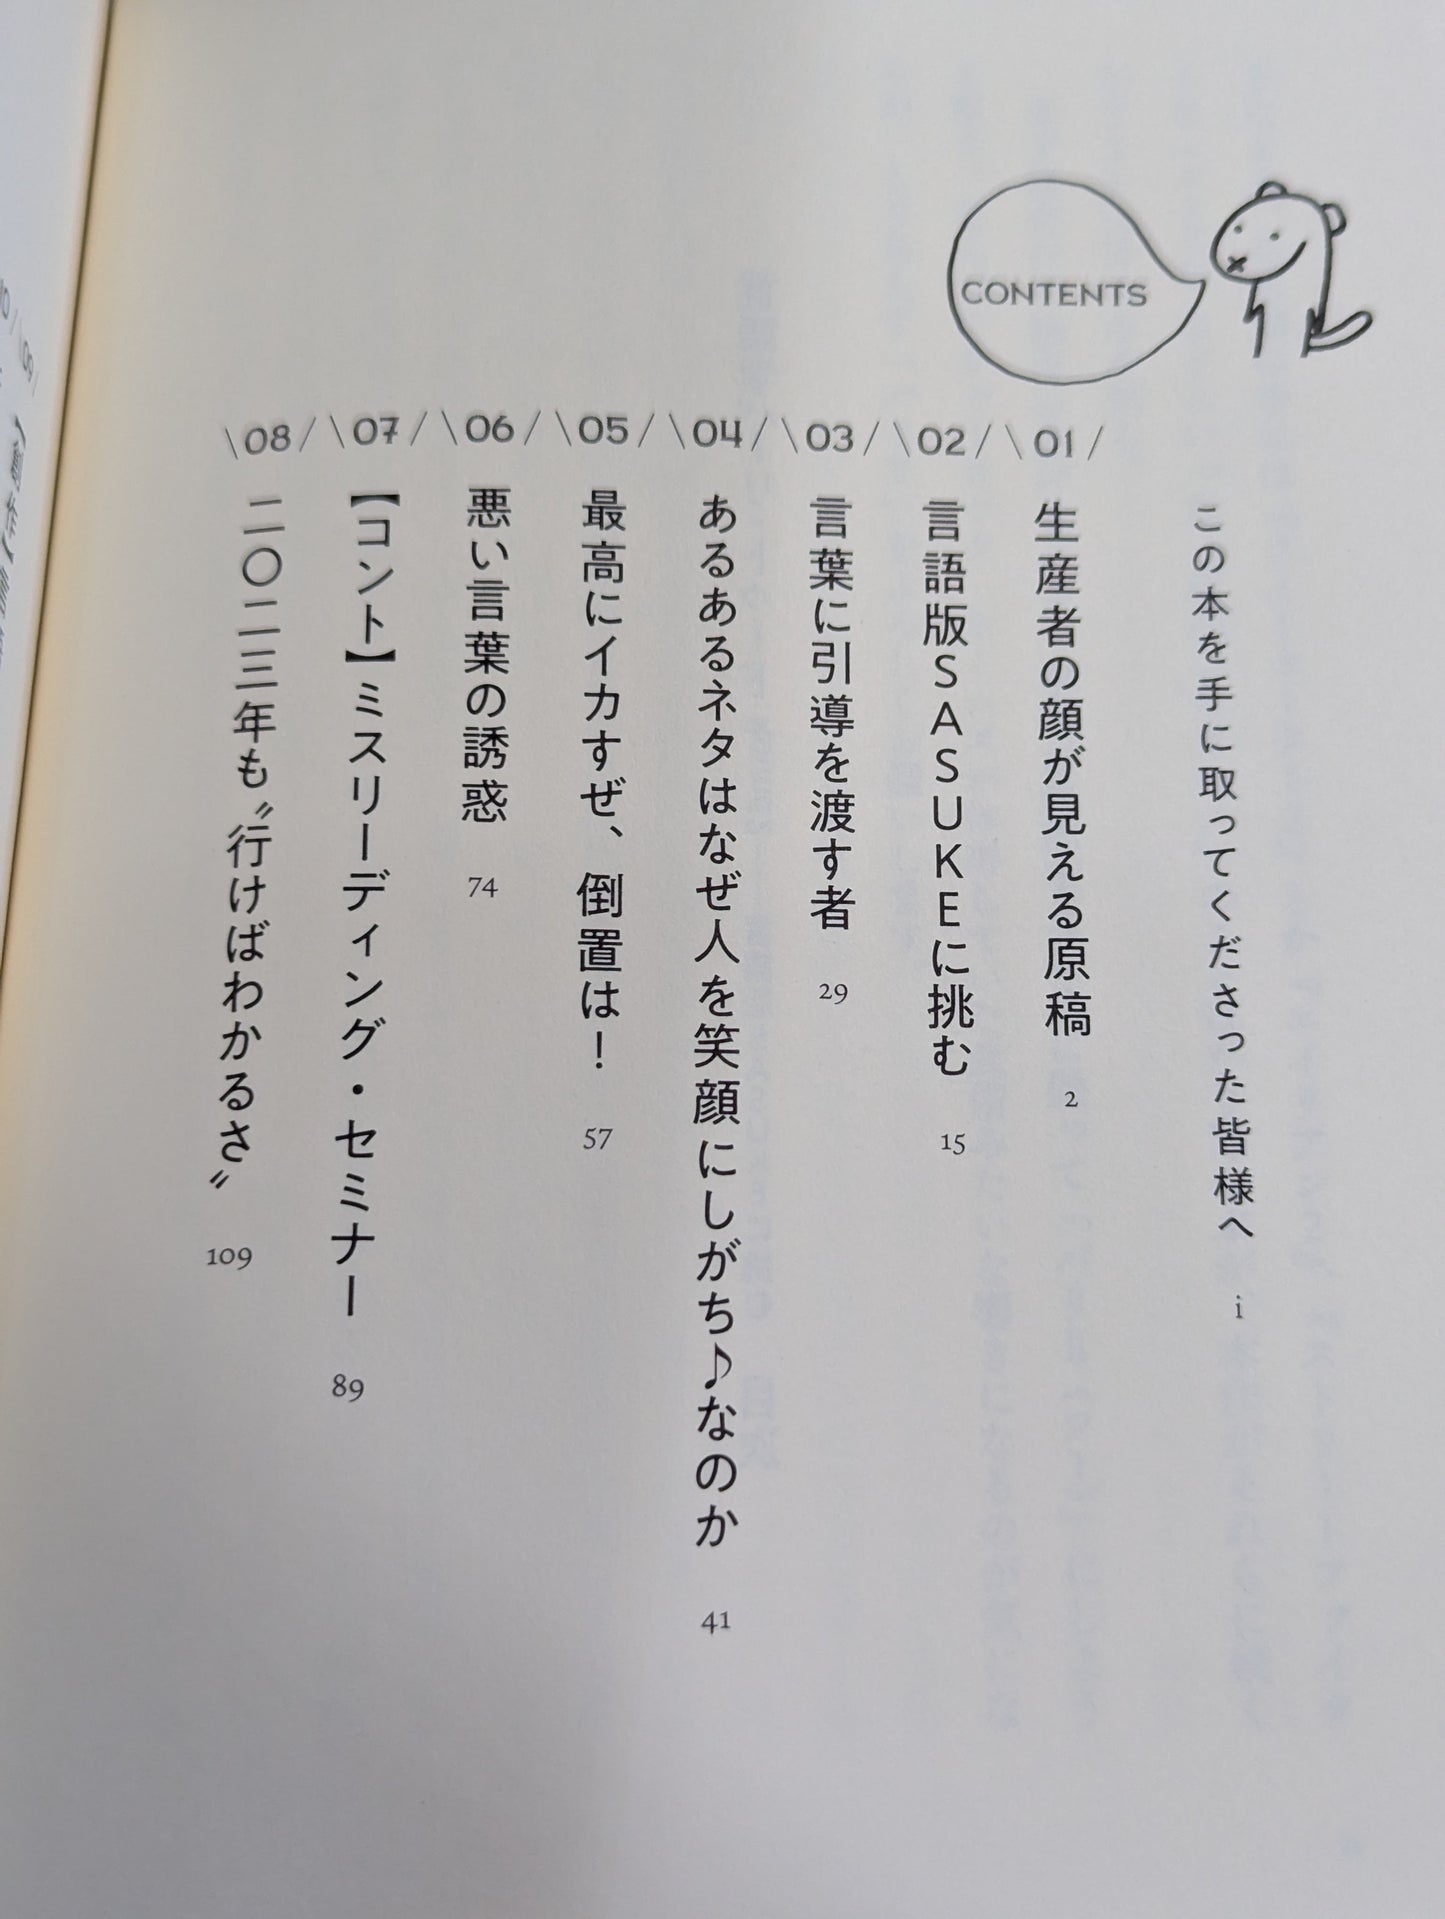 CONTENTS
この本を手に取ってくださった皆様へ i
\01/ 生産者の顔が見える原稿 2
\02/ 言語版SASUKEに挑む 15
\03/ 言葉に引導を渡す者 29
\04/ あるあるネタはなぜ人を笑顔にしがち♪なのか 41
\05/ 最高にイカすぜ、倒置は！ 57
\06/ 悪い言葉の誘惑 74
\07/ 【コント】ミスリーディング・セミナー 89
\08/ 二〇二三年も〝行けばわかるさ〟 109
\09/